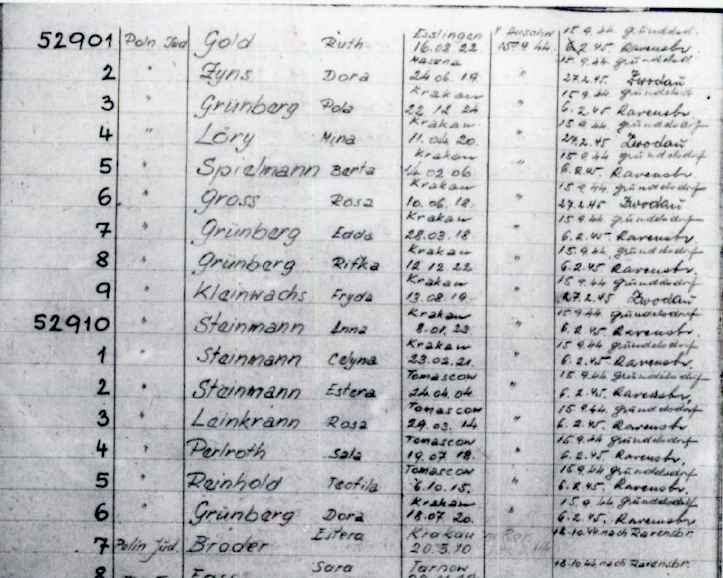 Esslingen 15.9.44. gründelsd.
52901 Poln Jüd Gold Ruth 16.08.22 v Auschw. 15.9.44. 6.2.45 Ravensbr.
15.9.44. gründelsd
2 " Zyns Dora 24.06.19. " 27.2.45. Zwodau
Krakau 15.9.44. gründelsd
3 " Grünberg Pola 22 12 24. " 6.2.45 Ravensbr.
Krakau 15.9.44. gründelsdorf
4 " Löry Mina 11.04 20. " 27.2.45 Zwodau
Krakau 15.9.44. gründelsdorf
5 " Spielmann Berta 14 02 06. " 6.2.45. Ravensbr.
Krakau 15.9.44 gründelsdorf
6 " Gross Rosa 10.06.18. " 27.2.45 Zwodau
Krakau 15.9.44. gründelsdorf
7 " Grünberg Edda 28.03.18 " 6.2.45. Ravensbr.
Krakau 15.9.44. gründelsdorf
8 " Grünberg Rifka 12 12 22. " 6.2.45 Ravensbr.
Krakau 15.9.44 gründelsdorf
9 " Kleinwachs Fryda 13.08.19. " 27.2.45 Zwodau
Krakau 15.9.44. gründelsdorf
52910 " Steinmann Anna 8.01.23. " 6.2.45 Ravensbr.
Krakau 15.9.44. gründelsdorf
1 " Steinmann Celyna 23.02.21. " 6.2.45 Ravensbr.
Tomascow 15.9.44. gründelsdorf
2 " Steinmann Estera 24.04.04 " 6.2.45. Ravensbr.
Tomascow 15.9.44. gründelsdorf
3 " Leinkrann Rosa 29.03.14 " 6.2.45. Ravensbr.
Tomascow 15.9.44 gründelsdorf
4 " Perlroth Sala 19.07 18. " 6.2.45. Ravensbr.
Tomascow 15.9.44 gründelsdorf
5 " Reinhold Teofila 6.10.15. " 6.2.45. Ravensbr.
Krakau 15.9.44 gründelsdorf
6 " Grünberg Dora 18.07 20. " 6.2.45. Ravensbr.
7 Polin Jüd. Broder Estera Krakau 18.10.44 nach Ravensbr.
20.3.10
8 Sara Tarnow 18.10.44 nach Ravensbr.